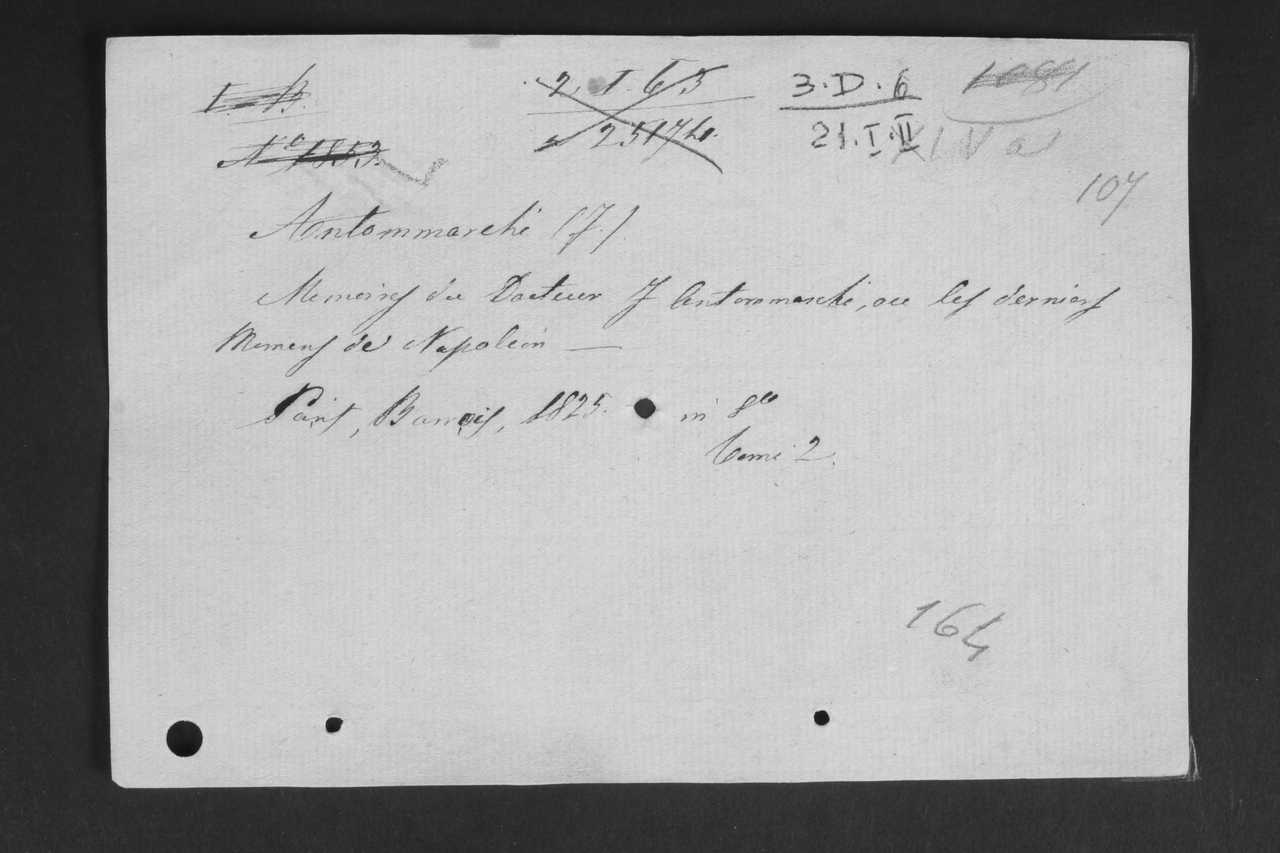 I. B.
2. I. 65
3.D.6
No 1853.
25174.
21.I.II
XLV a
107
Antommarchi (F.)
Memoires du Docteur F Antommarchi, ou les derniers
Momens de Napoleon —
Paris, Barrois, 1825. in 8vo
Tome 2.
164